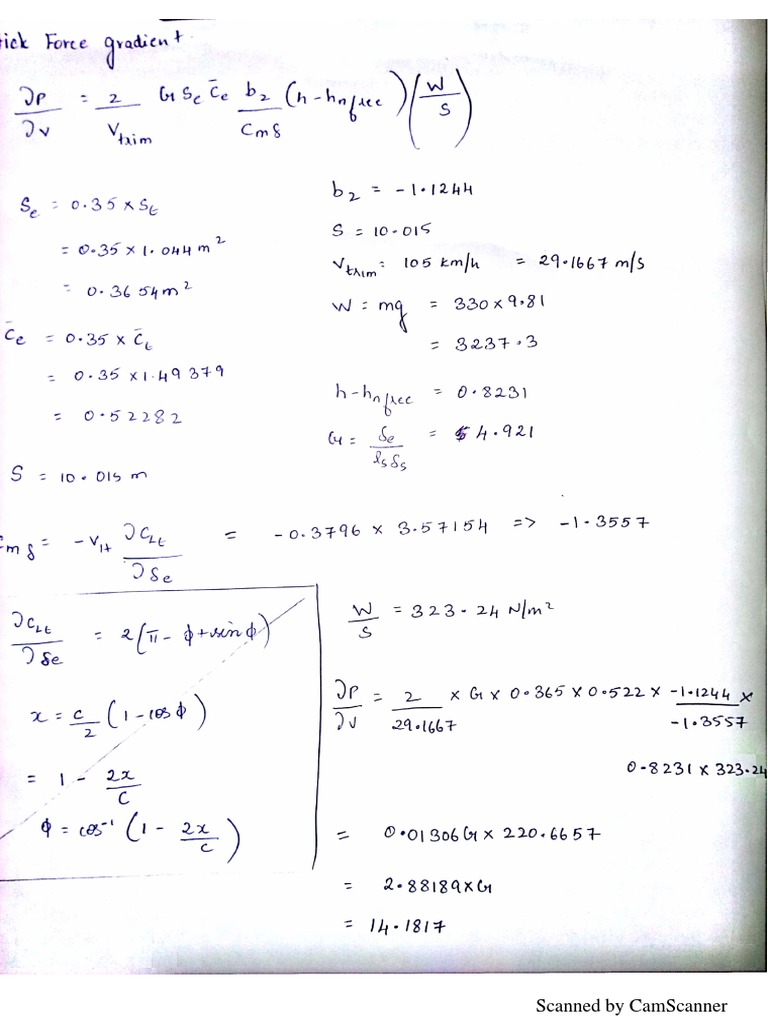 tick Force gradient
∂P/∂v = 2/Vtrim G Se c̄e b2/Cmδ (h-hnfree)(W/S)
Se = 0.35 x St
= 0.35 x 1.044 m²
= 0.3654 m²
c̄e = 0.35 x c̄t
= 0.35 x 1.49379
= 0.52282
S = 10.015 m
b2 = -1.1244
S = 10.015
Vtrim: 105 km/h = 29.1667 m/s
W = mg = 330 x 9.81
= 3237.3
h-hnfree = 0.8231
G = δe/lsδs = 4.921
mδ = -VH ∂CLt/∂δe = -0.3796 x 3.57154 => -1.3557
∂CLt/∂δe = 2(π - ϕ + sinϕ)
x = c/2 (1-cosϕ)
= 1 - 2x/c
ϕ = cos⁻¹(1 - 2x/c)
W/S = 323.24 N/m²
∂P/∂v = 2/29.1667 x G x 0.365 x 0.522 x -1.1244/-1.3557 x
0.8231 x 323.24
= 0.01306 G x 220.6657
= 2.88189 x G
= 14.1817
Scanned by CamScanner